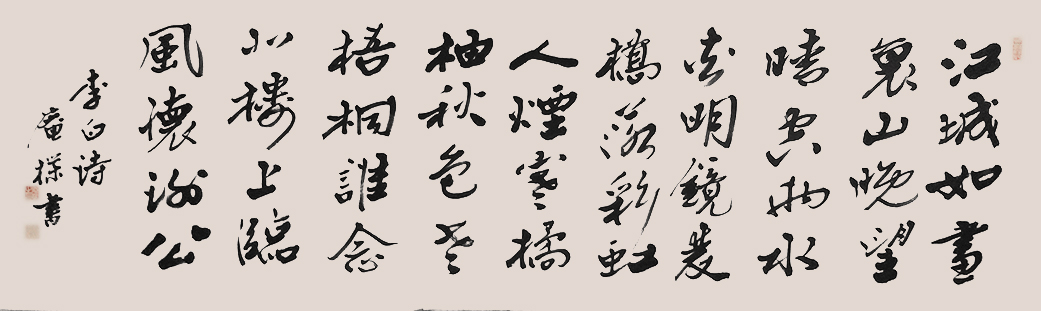 江城如畫
裏山晚望
晴空兩水
夾明鏡雙
橋落彩虹
人煙寒橘
柚秋色老
梧桐誰念
北樓上臨
風懷謝公
李白诗
庵書